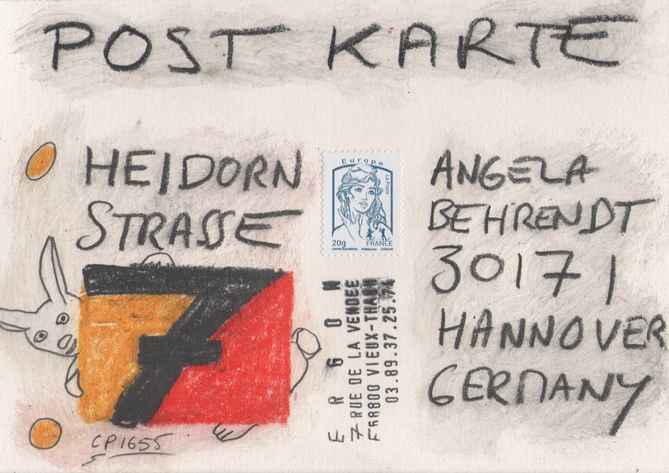 POST KARTE
HEIDORN
STRASSE
7
CP1655
Europa
20g
FRANCE
ERGON
7 RUE DE LA VENDEE
VIEUX-THANN
03.89.37.25.
ANGELA
BEHRENDT
30171
HANNOVER
GERMANY